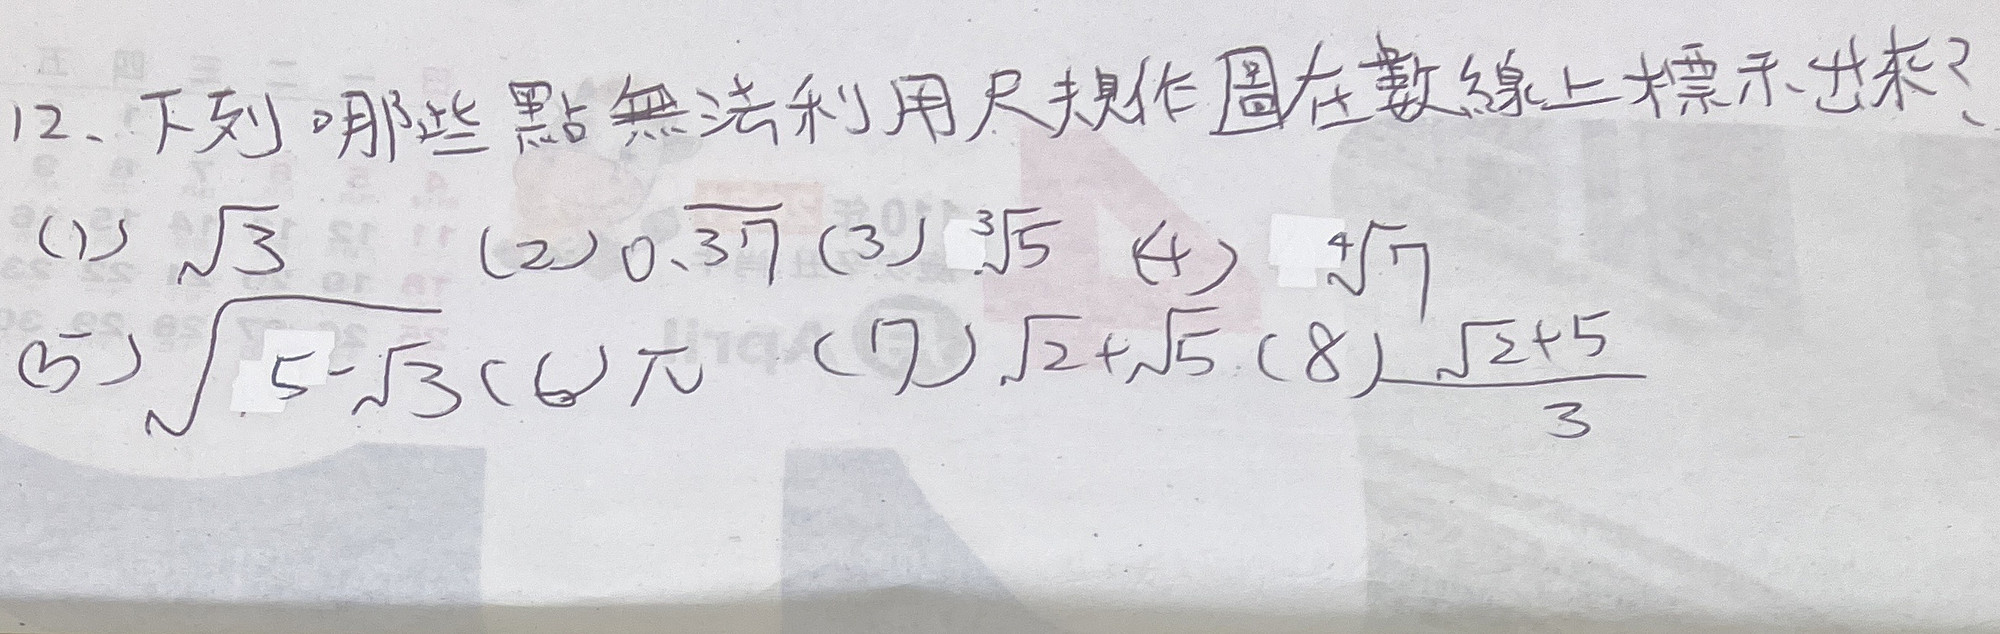 12、下列哪些點無法利用尺規作圖在數線上標示出來？
(1) √3 (2) 0.\overline{37} (3) ∛5 (4) ∜7
(5) √(5-√3) (6) π (7) √2+√5 (8) (√2+5)/3